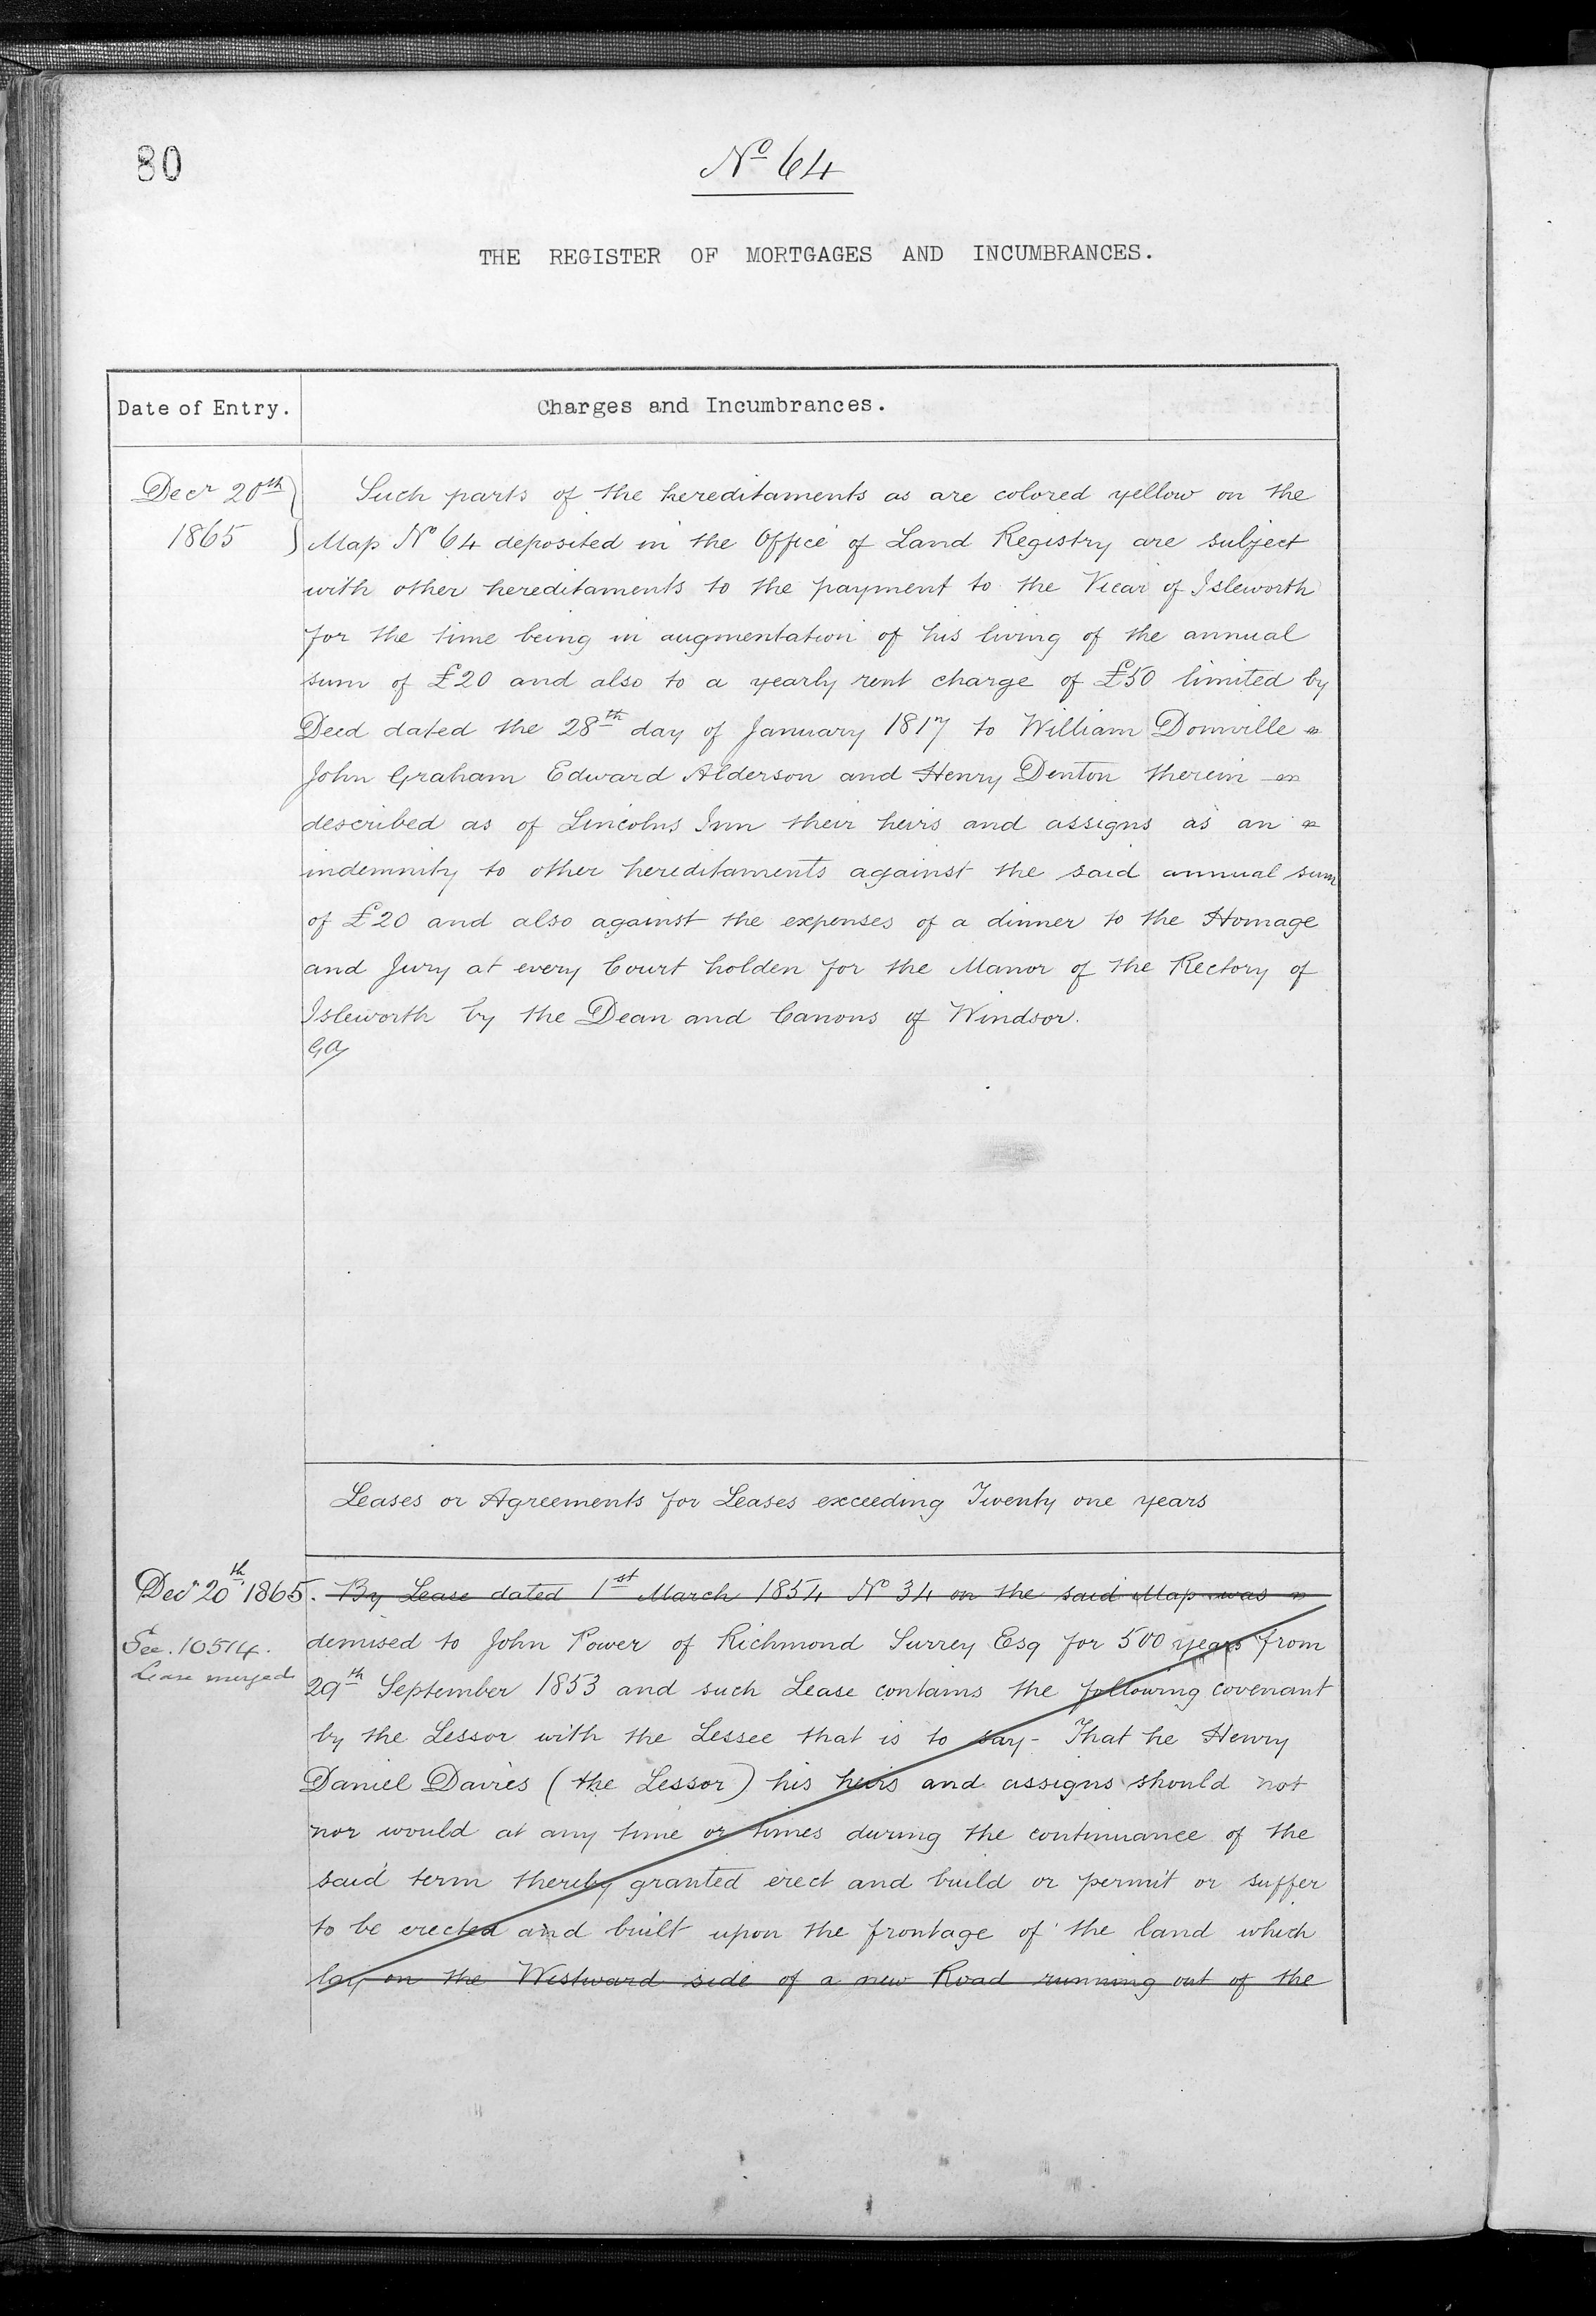 80
No 64
THE REGISTER OF MORTGAGES AND INCUMBRANCES.
Date of Entry.
Charges and Incumbrances.
Decr 20th
1865
Such parts of the hereditaments as are colored yellow on the
Map No 64 deposited in the Office of Land Registry are subject
with other hereditaments to the payment to the Vicar of Isleworth
for the time being in augmentation of his living of the annual
sum of £20 and also to a yearly rent charge of £50 limited by
Deed dated the 28th day of January 1817 to William Domville
John Graham Edward Alderson and Henry Denton therein
described as of Lincolns Inn their heirs and assigns as an
indemnity to other hereditaments against the said annual sum
of £20 and also against the expenses of a dinner to the Homage
and Jury at every Court holden for the Manor of the Rectory of
Isleworth by the Dean and Canons of Windsor.
Leases or Agreements for Leases exceeding Twenty one years
Decr 20th 1865.
See. 10514.
Lease merged
By Lease dated 1st March 1854 No 34 on the said Map was
demised to John Power of Richmond Surrey Esq for 500 years from
29th September 1853 and such Lease contains the following covenant
by the Lessor with the Lessee that is to say - That he Henry
Daniel Davies (the Lessor) his heirs and assigns should not
nor would at any time or times during the continuance of the
said term thereby granted erect and build or permit or suffer
to be erected and built upon the frontage of the land which
lay on the Westward side of a new Road running out of the